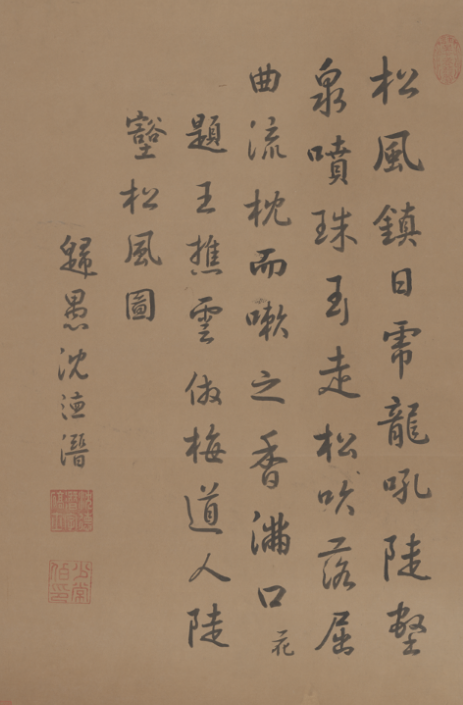 松風鎮日帶龍吼陡壑
泉噴珠玉走松吹落屈
曲流枕而嗽之香滿口 花
題王樵雲倣梅道人陡
壑松風圖
歸愚沈德潛